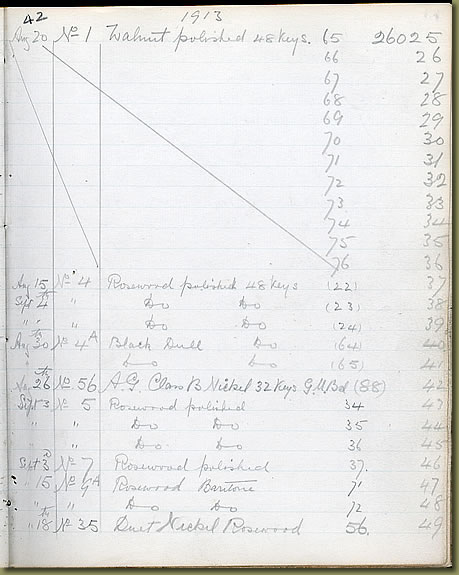 42 1913
Aug 20 No 1 Walnut polished 48 Keys. 65 26025
66 26
67 27
68 28
69 29
70 30
71 31
72 32
73 33
74 34
75 35
76 36
Aug 15 No 4 Rosewood polished 48 Keys (22) 37
Sept 4th " Do Do (23) 38
" " " Do Do (24) 39
Aug 30th No 4A Black Dull Do (64) 40
Do Do (65) 41
26th No 56 A.G. Class B Nickel 32 Keys (88) 42
Sept 3 No 5 Rosewood polished 34 43
" " Do Do 35 44
" " Do Do 36 45
Sept 3d No 7 Rosewood polished 37. 46
" 15 No Rosewood Baritone 71 47
" " Do Do 72 48
" 18th No 35 Duet Nickel Rosewood 56. 49